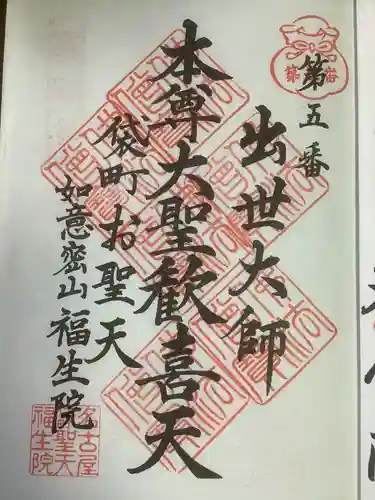 第五番
出世大師
本尊大聖歓喜天
袋町お聖天
如意密山福生院
名古屋
聖天
福生院